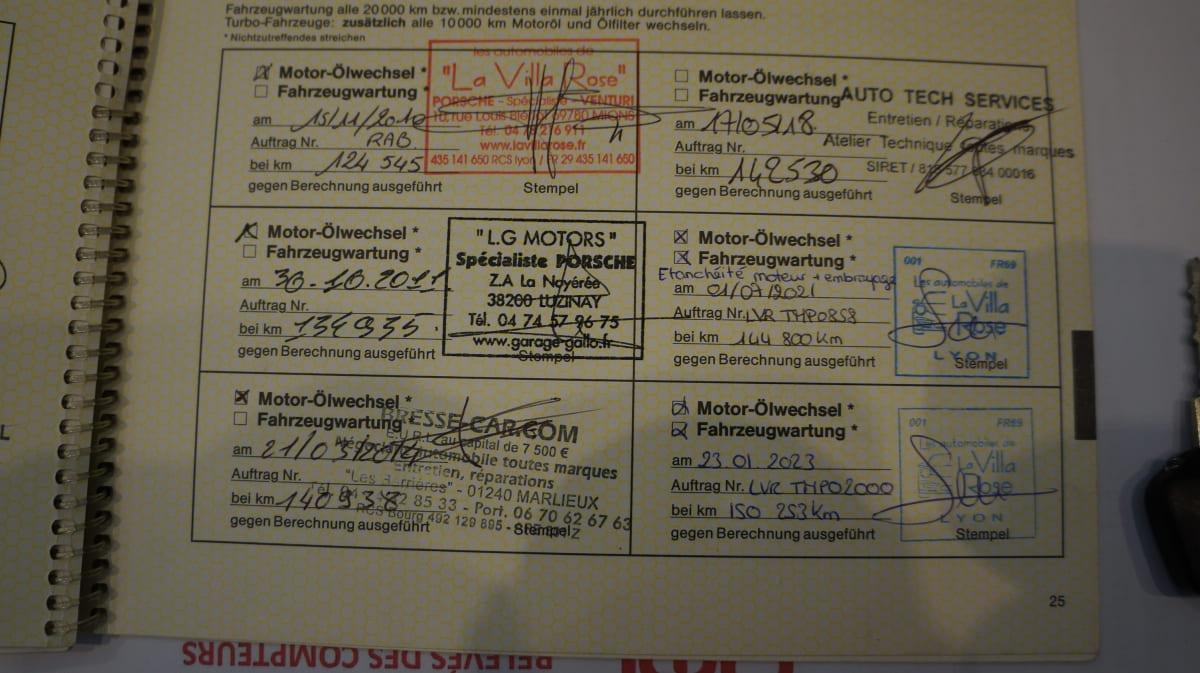 Fahrzeugwartung alle 20 000 km bzw. mindestens einmal jährlich durchführen lassen.
Turbo-Fahrzeuge: zusätzlich alle 10 000 km Motoröl und Ölfilter wechseln.
* Nichtzutreffendes streichen
Motor-Ölwechsel *
Fahrzeugwartung *
am 15/11/2010
Auftrag Nr. RAB.
bei km 124 545
gegen Berechnung ausgeführt
Stempel
les automobiles de
"La Villa Rose"
PORSCHE - Spécialiste - VENTURI
10, rue Louis Blériot 69780 MIONS
www.lavillarose.fr
435 141 650 RCS lyon / FR 29 435 141 650
Motor-Ölwechsel *
Fahrzeugwartung
am 17/05/18.
Auftrag Nr.
bei km 142530
gegen Berechnung ausgeführt
Stempel
AUTO TECH SERVICES
Entretien / Réparation
Atelier Technique toutes marques
Motor-Ölwechsel *
Fahrzeugwartung *
am 30-10.2011
Auftrag Nr.
bei km 134935.
gegen Berechnung ausgeführt
"L.G MOTORS"
Spécialiste PORSCHE
Z.A La Noyérée
38200 LUZINAY
Tél. 04 74 57 96 75
www.garage-gallo.fr
Stempel
Motor-Ölwechsel *
Fahrzeugwartung *
Etanchéité moteur + embrayage
am 01/07/2021
Auftrag Nr. LVR THP0858
bei km 144 800 Km
gegen Berechnung ausgeführt
001 FR69
Les automobiles de
La Villa
Rose
LYON
Stempel
Motor-Ölwechsel *
Fahrzeugwartung *
am 21/03/2014
Auftrag Nr.
bei km 140938
gegen Berechnung ausgeführt
BRESSE-CAR.COM
E.U.R.L au capital de 7 500 €
Négociant automobile toutes marques
Entretien, réparations
"Les Barrières" - 01240 MARLIEUX
85 33 - Port. 06 70 62 67 63
RCS Bourg 492 129 895
Stempel
Motor-Ölwechsel *
Fahrzeugwartung *
am 23.01.2023
Auftrag Nr. LVR THP02000
bei km 150 253 Km
gegen Berechnung ausgeführt
001 FR69
Les automobiles de
La Villa
Rose
LYON
Stempel
25
RELEVÉS DES COMPTEURS